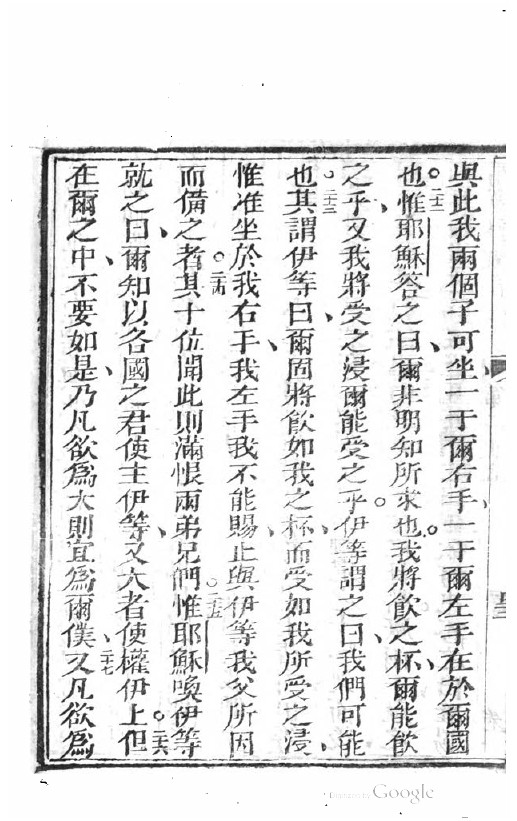 與此我兩個子可坐一于爾右手、一于爾左手在於爾國
也。二十二惟耶穌答之曰、爾非明知所求也。我將飲之杯、爾能飲
之乎、又我將受之浸爾能受之乎。伊等謂之曰、我們可能
也。二十三其謂伊等曰、爾固將飲如我之杯、而受如我所受之浸、
惟准坐於我右手、我左手我不能賜、止與伊等我父所因
而備之者。二十四其十位聞此則滿恨兩弟兄們。二十五惟耶穌喚伊等
就之曰、爾知以各國之君使主伊等、又大者使權伊上。二十六但
在爾之中、不要如是、乃凡欲為大則宜為爾僕、二十七又凡欲為
Digitized by Google